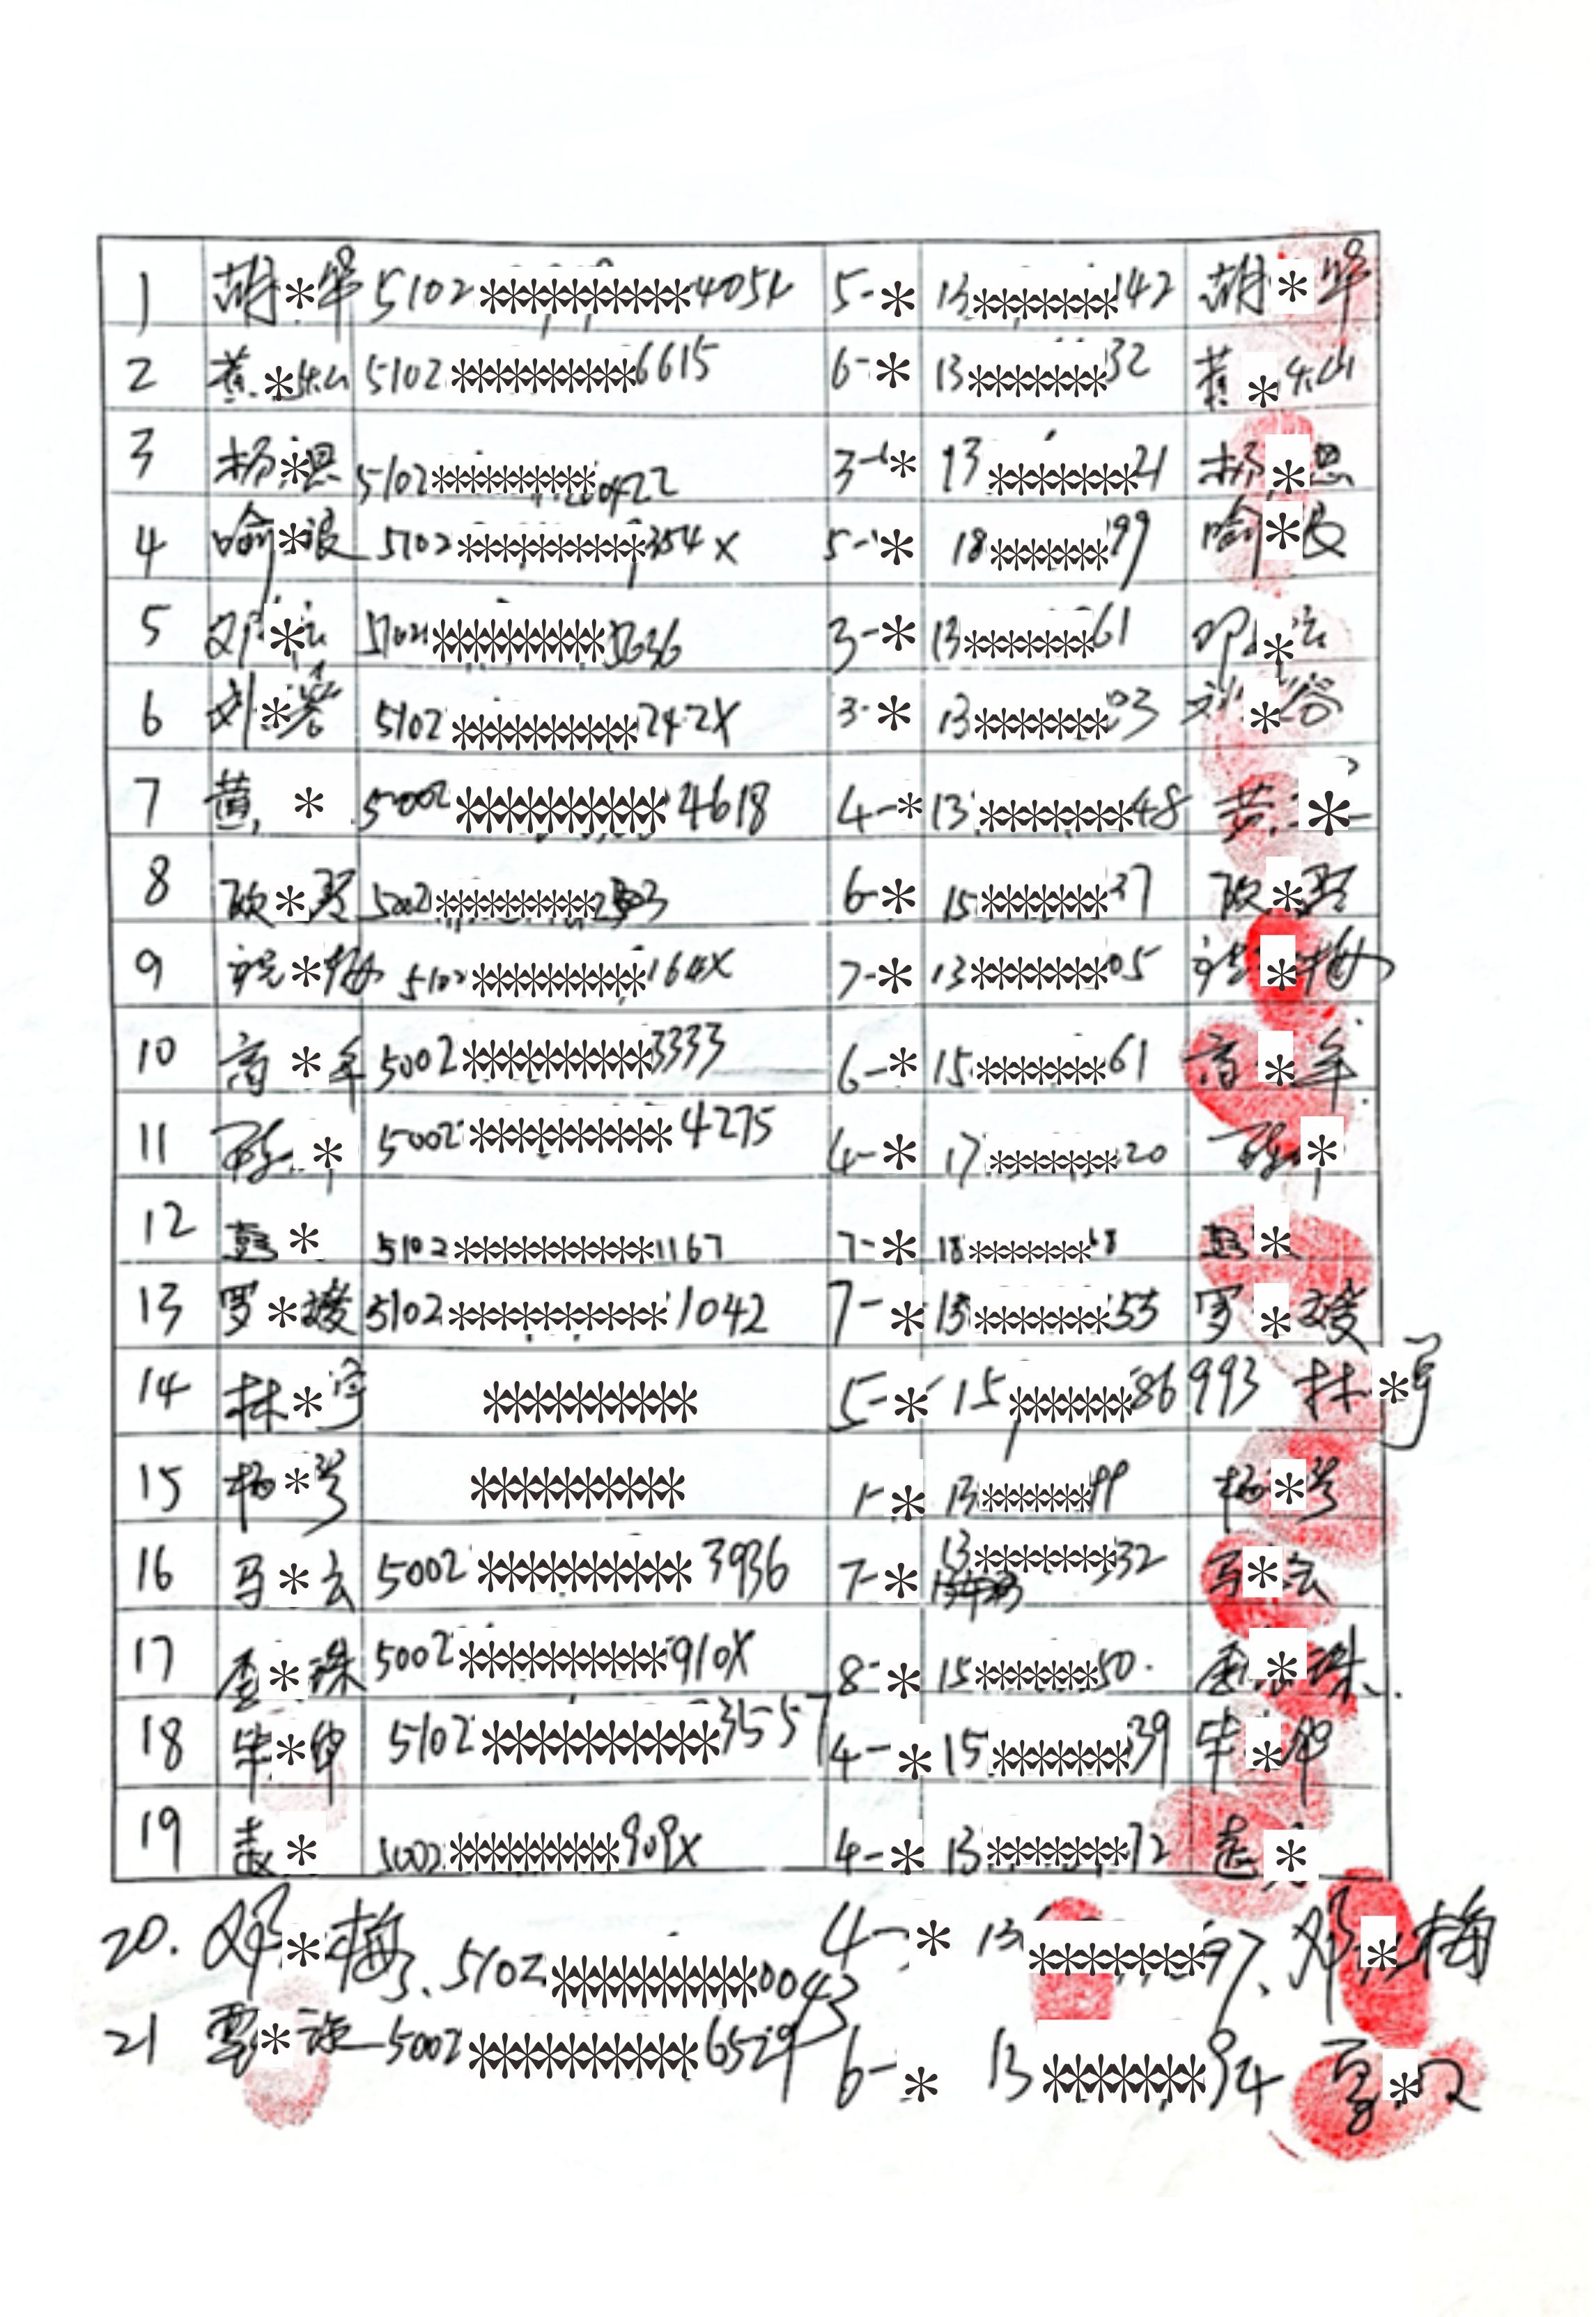 1 胡*华 5102**********4054 5-* 13********142 胡*华
2 黄* 5102**********6615 6-* 13********32 黄*
3 杨*恩 5102**********0422 3-* 13********21 杨*恩
4 喻*浪 5102**********354X 5-* 18*******99 喻*
5 邓* 5102**********5636 3-* 13********61 邓*
6 刘*蓉 5102**********242X 3-* 13********03 刘*蓉
7 黄* 5002**********4618 4-* 13********48 黄*
8 欧* 5002********** 6-* 15********37 欧*
9 *梅 5102**********164X 7-* 13********05 *梅
10 高*年 5002**********3333 6-* 15********61 高*年
11 陈* 5002**********4275 4-* 17********20 陈*
12 彭* 5102**********1167 7-* 18********8 彭*
13 罗* 5102**********1042 7-* 13********55 罗*
14 林*宇 ********** 5-* 15*******86993 林*宇
15 杨*芳 ********** 1-* 13*******99 杨*芳
16 马*云 5002**********3936 7-* 13********32 马*云
17 李*珠 5002**********910X 8-* 15********50. 李*珠
18 毕* 5102**********3557 4-* 15********39 毕*
19 袁* 5002**********909X 4-* 13********72 袁*
20. 邓*梅. 5102**********0043 4-* 13********97. 邓*梅
21 * 5002**********6529 6-* 13********94 *